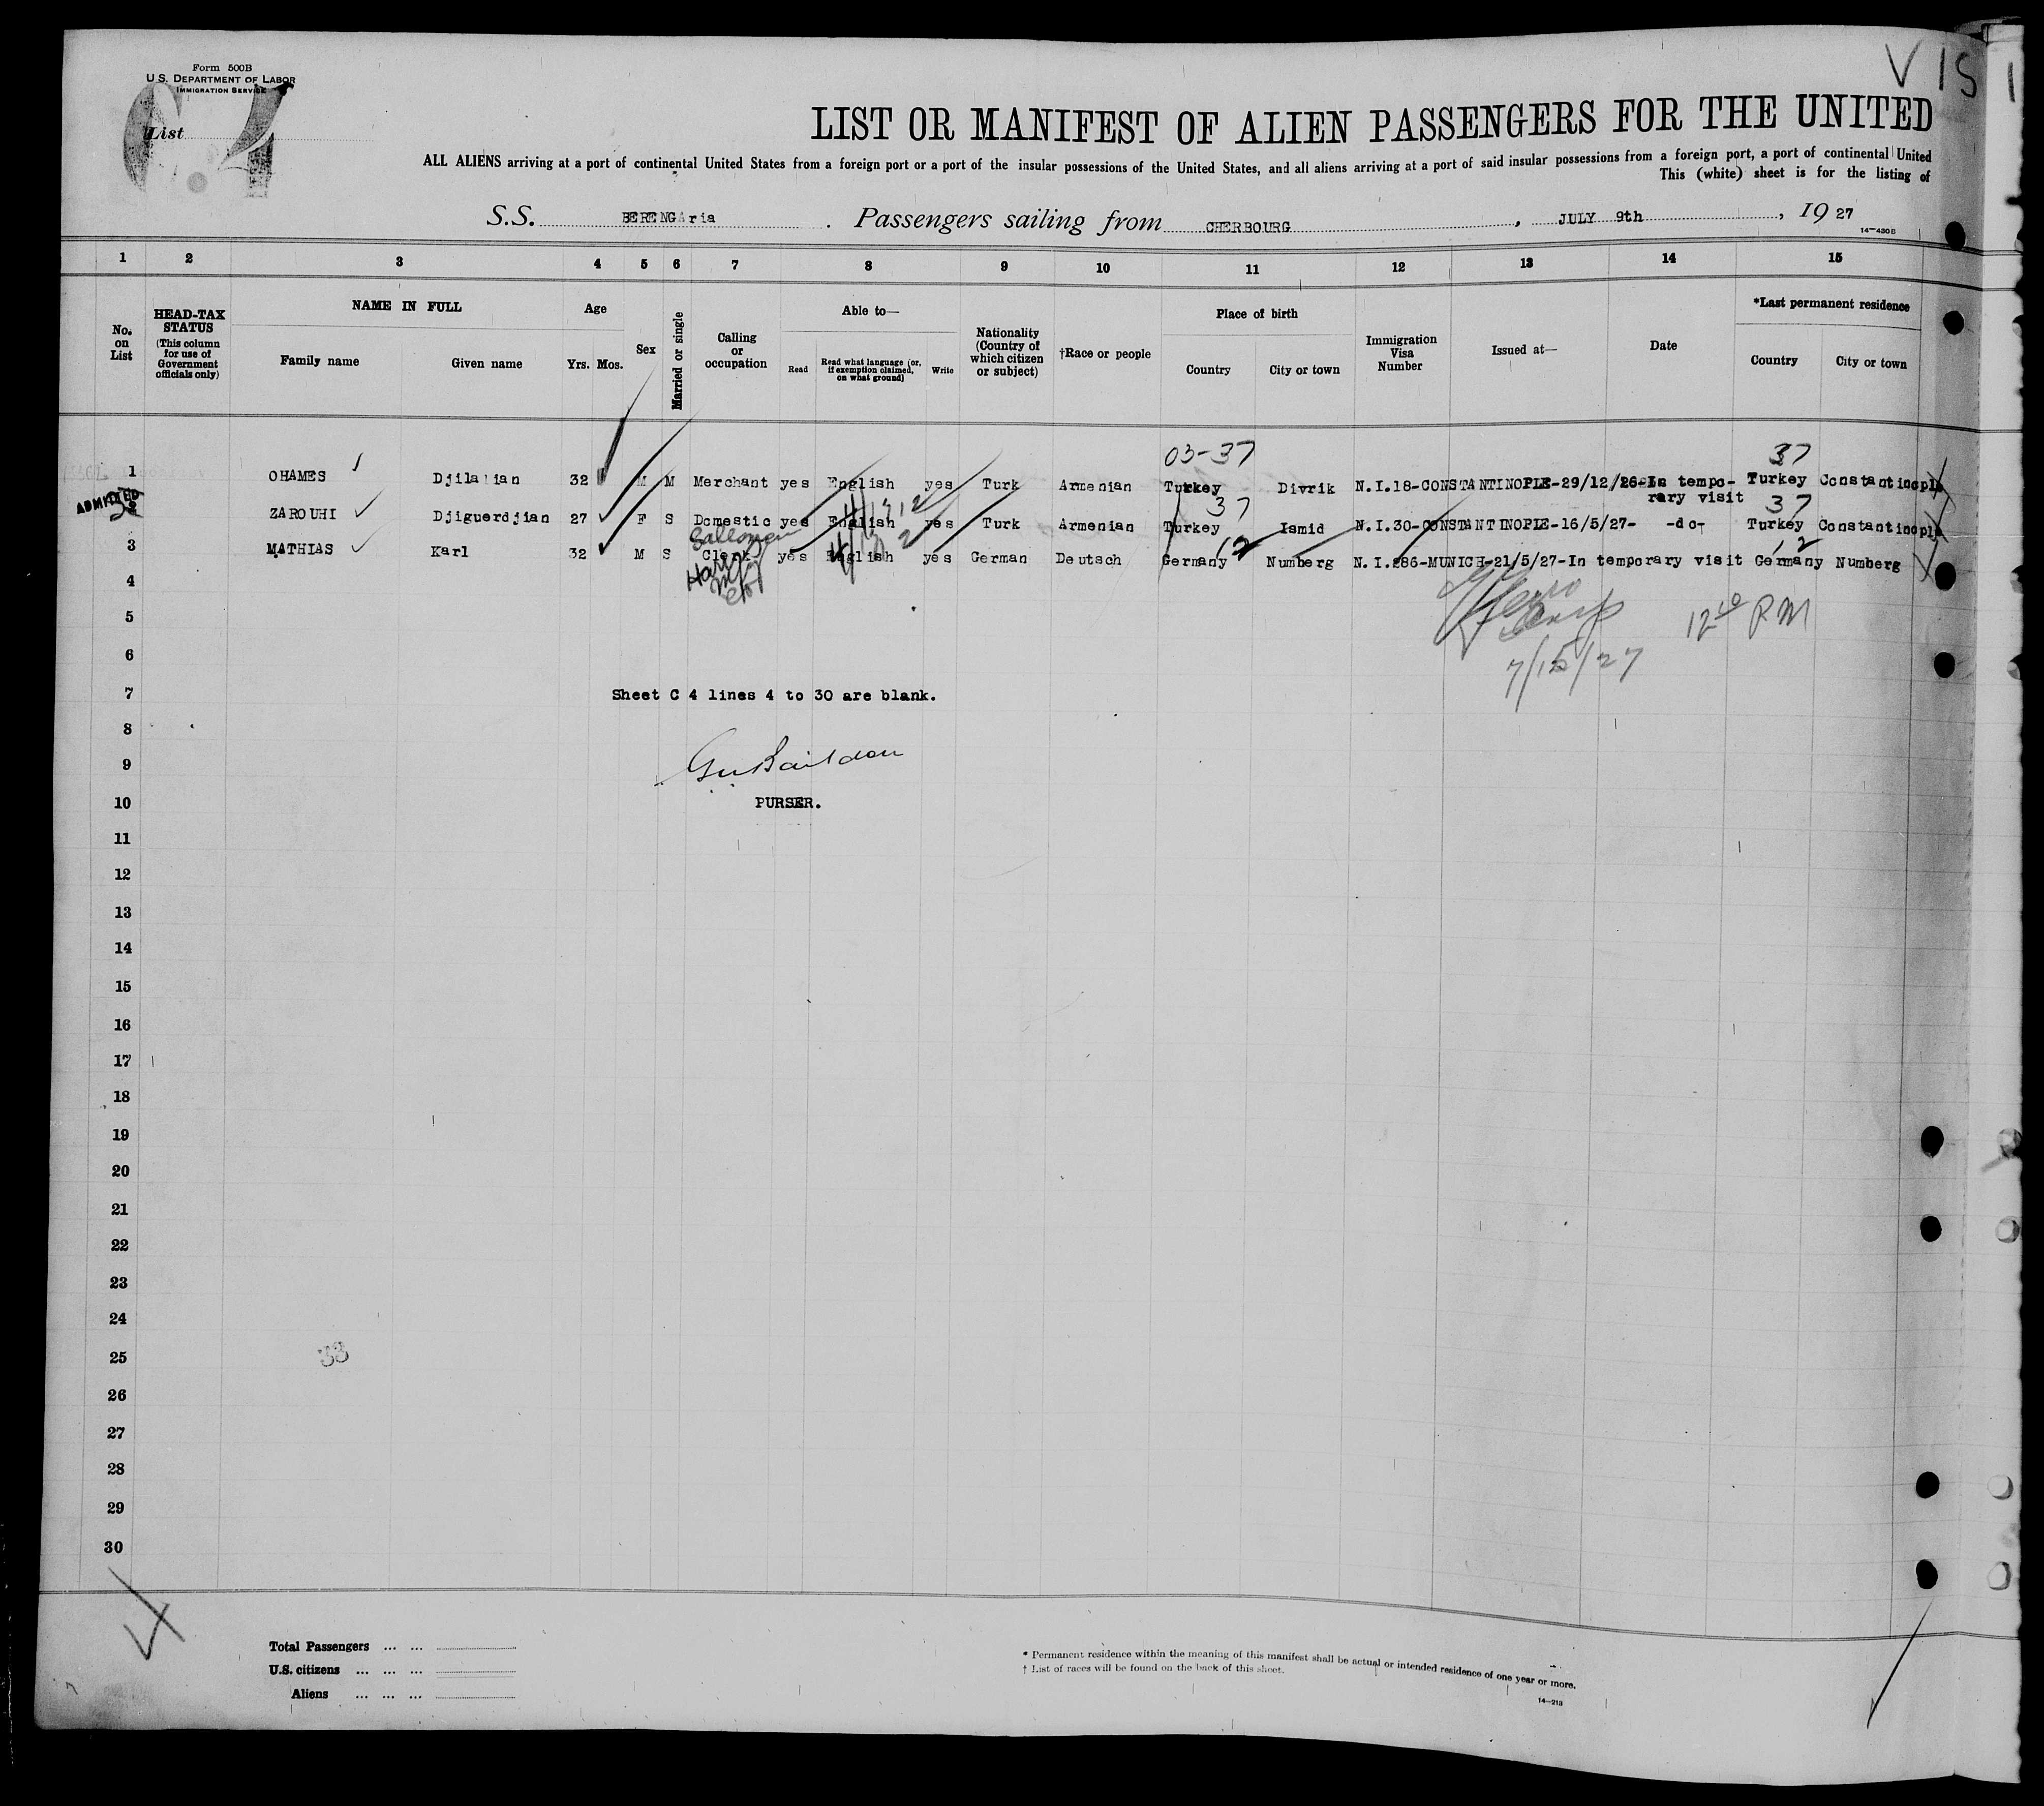 Form 500B
U.S. DEPARTMENT OF LABOR
IMMIGRATION SERVICE
List
VIS
LIST OR MANIFEST OF ALIEN PASSENGERS FOR THE UNITED
ALL ALIENS arriving at a port of continental United States from a foreign port or a port of the insular possessions of the United States, and all aliens arriving at a port of said insular possessions from a foreign port, a port of continental United
This (white) sheet is for the listing of
S.S. BERENGAria . Passengers sailing from CHERBOURG , JULY 9th , 19 27
14—430B
1 2 3 4 5 6 7 8 9 10 11 12 13 14 15
No. on List
HEAD-TAX STATUS (This column for use of Government officials only)
NAME IN FULL
Family name Given name
Age
Yrs. Mos.
Sex
Married or single
Calling or occupation
Able to—
Read
Read what language (or, if exemption claimed, on what ground)
Write
Nationality (Country of which citizen or subject)
†Race or people
Place of birth
Country City or town
Immigration Visa Number
Issued at—
Date
*Last permanent residence
Country City or town
03-37 37
1 OHAMES Djilalian 32 M M Merchant yes English yes Turk Armenian Turkey Divrik N.I.18-CONSTANTINOPLE-29/12/26-In tempo- Turkey Constantinople
rary visit
37 37
ADMITTED
2 ZAROUHI Djiguerdjian 27 F S Domestic yes English yes Turk Armenian Turkey Ismid N.I.30-CONSTANTINOPLE-16/5/27- -do- Turkey Constantinople
12 12
3 MATHIAS Karl 32 M S Clerk yes English yes German Deutsch Germany Numberg N.I.286-MUNICH-21/5/27-In temporary visit Germany Numberg
4
5
12 10 PM
6
7/15/27
7 Sheet C 4 lines 4 to 30 are blank.
8
9
10 PURSER.
11
12
13
14
15
16
17
18
19
20
21
22
23
24
25 33
26
27
28
29
30
Total Passengers ... ...
U.S. citizens ... ... ...
Aliens ... ... ...
* Permanent residence within the meaning of this manifest shall be actual or intended residence of one year or more.
† List of races will be found on the back of this sheet.
14—213